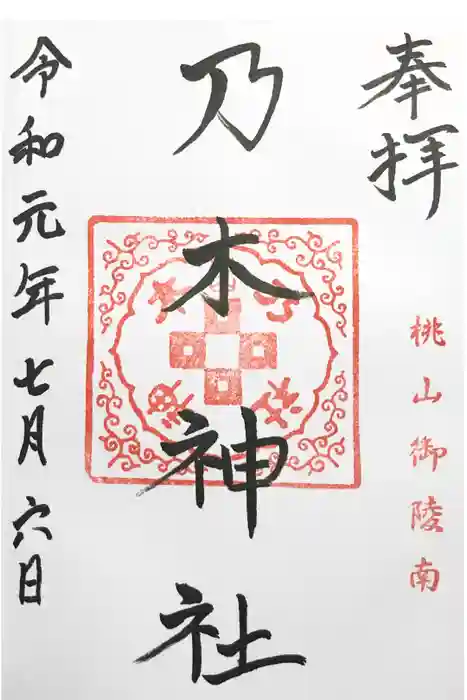 奉拝
桃山御陵南
乃木神社
令和元年七月六日